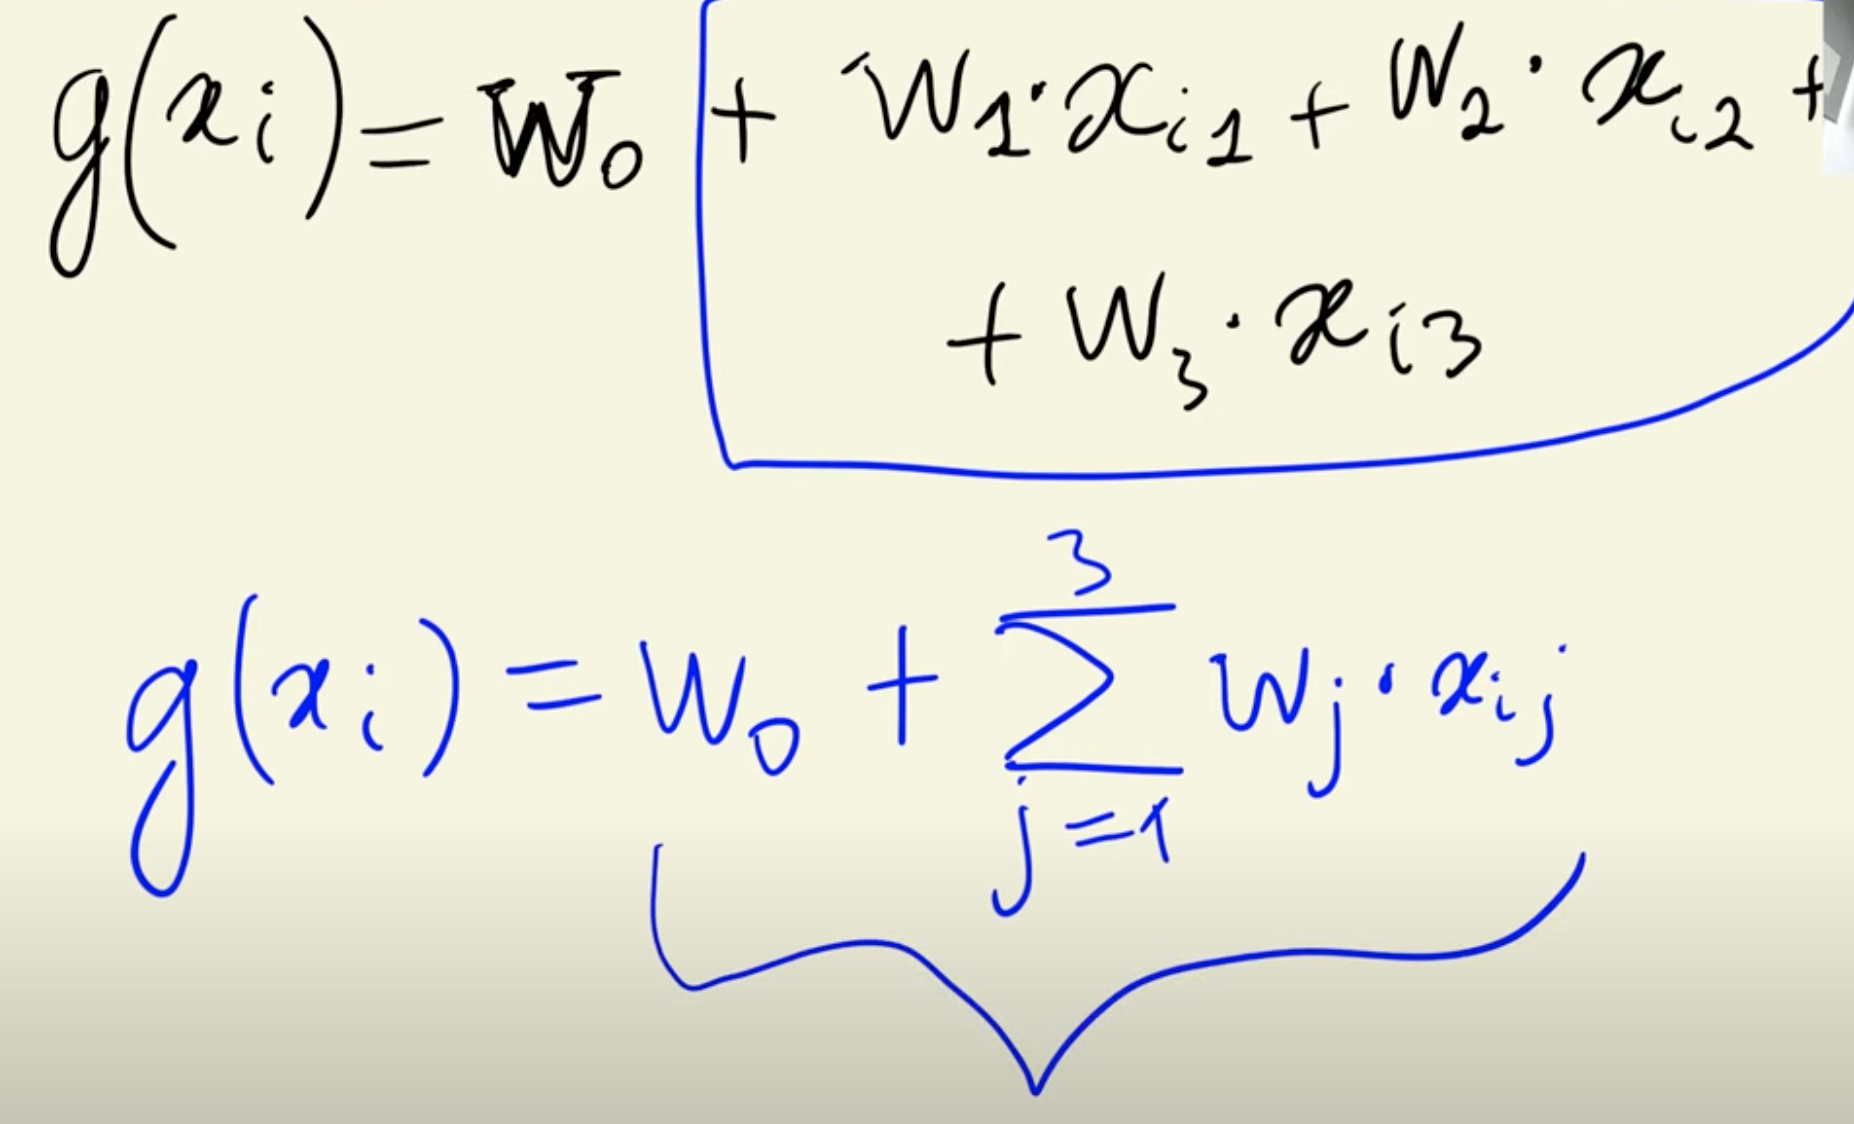 g(xᵢ) = W₀ + W₁·xᵢ₁ + W₂·xᵢ₂ +
+ W₃·xᵢ₃
g(xᵢ) = W₀ + ∑ⱼ₌₁³ Wⱼ·xᵢⱼ